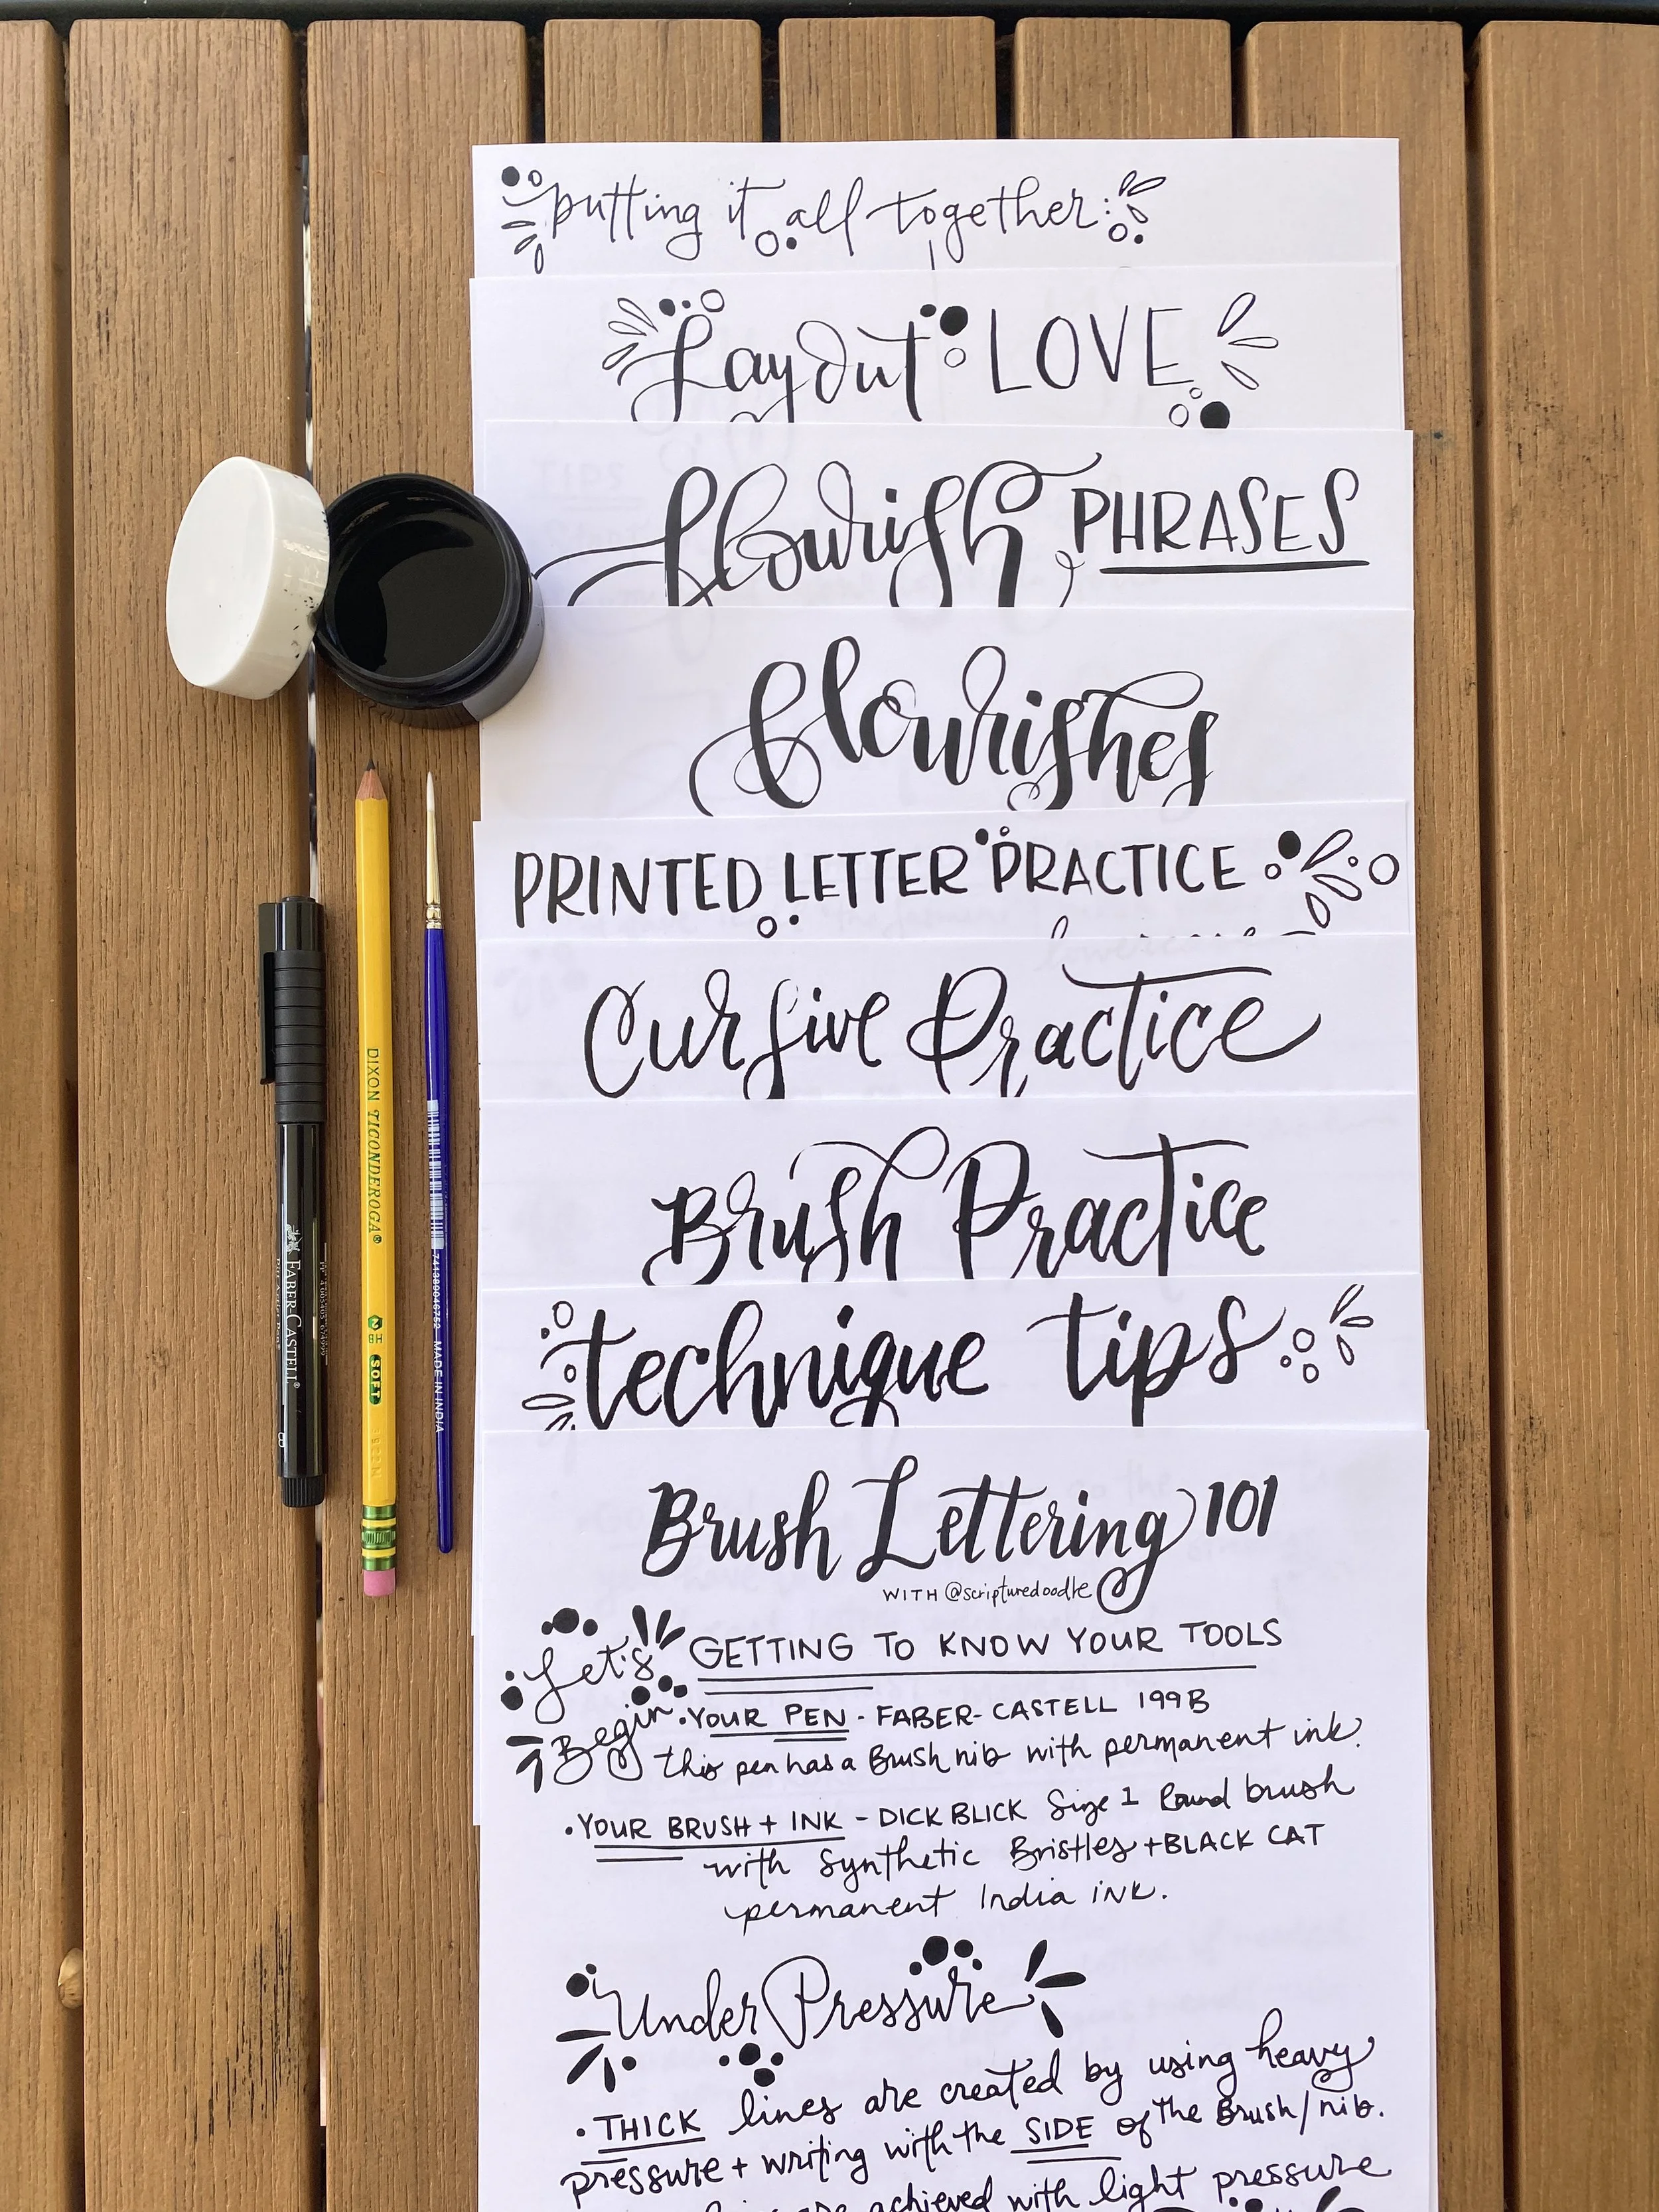 putting it all together:
Layout LOVE
flourish PHRASES
flourishes
PRINTED LETTER PRACTICE
Cursive Practice
Brush Practice
technique tips
Brush Lettering 101
WITH @scripturedoodle
Let's Begin
GETTING TO KNOW YOUR TOOLS
• YOUR PEN - FABER-CASTELL 199B
this pen has a Brush nib with permanent ink.
• YOUR BRUSH + INK - DICK BLICK Size 1 Round brush
with Synthetic Bristles + BLACK CAT
permanent India ink.
Under Pressure
• THICK lines are created by using heavy
pressure + writing with the SIDE of the Brush/nib.
achieved with light pressure
FABER-CASTELL®
B
DIXON TICONDEROGA®
2 HB SOFT
741389046752 MADE IN INDIA